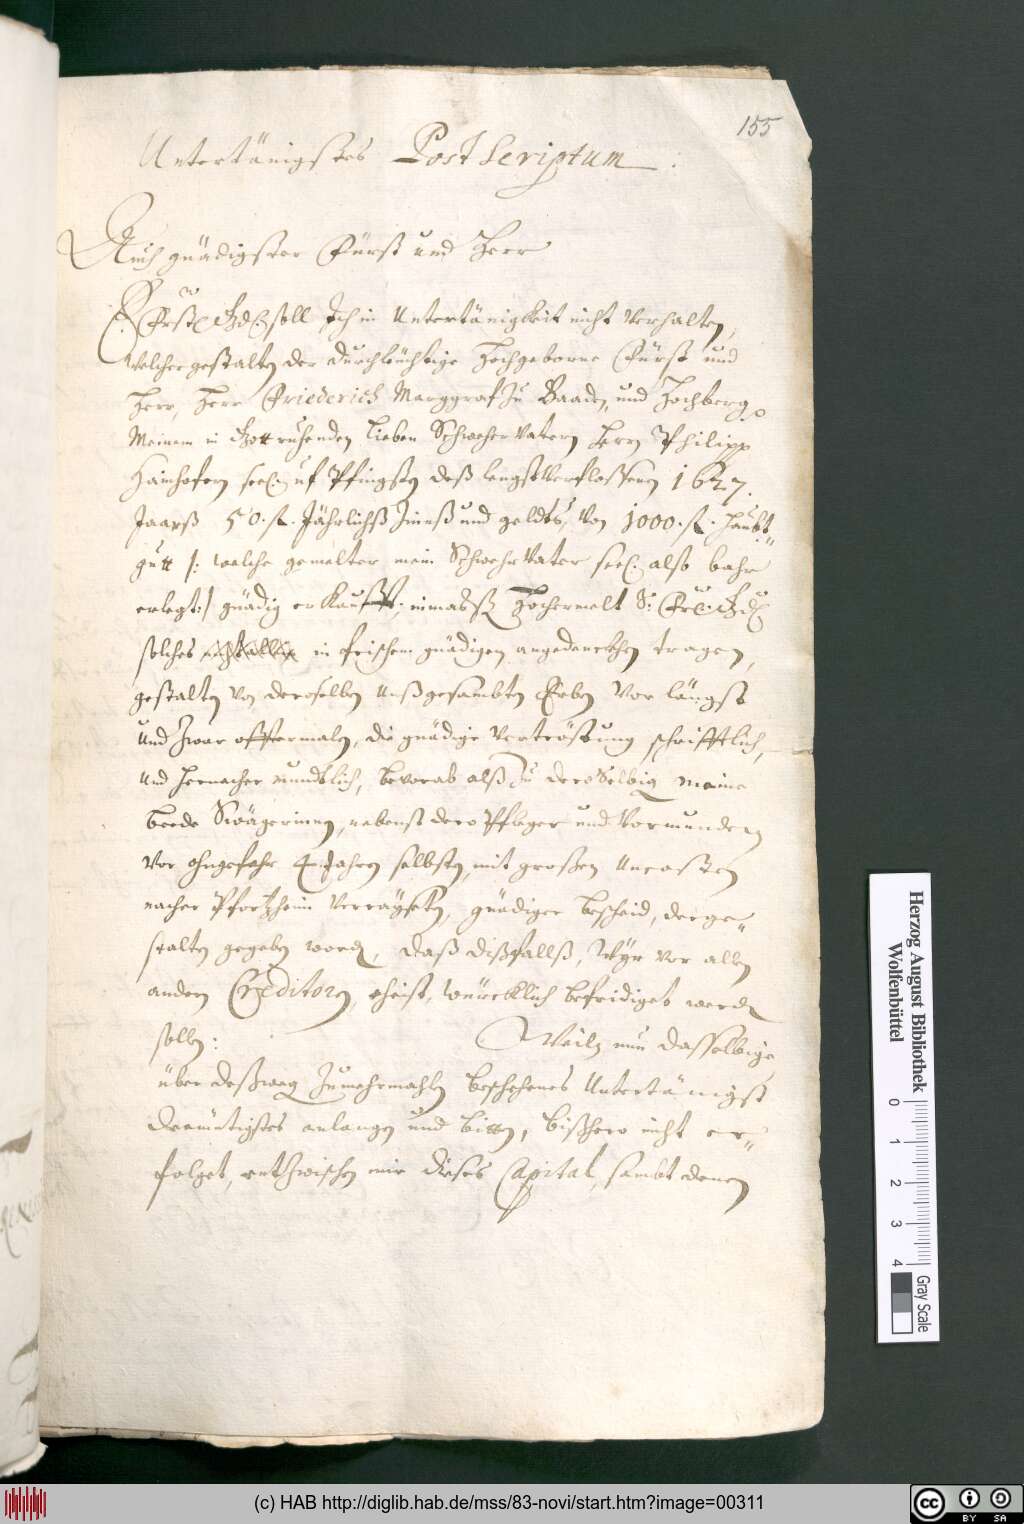 155
Untertänigstes Postscriptum.
Auch gnädigster Fürst und Herr
E. Frstl. Gd. soll Ich in Untertänigkeit nicht Verhalten,
welcher gestalten der durchleüchtige Hochgeborne Fürst und
Herr, Herr Friederich Marggraf Zu Baaden, und Hochberg
Meinem in Gott ruhenden lieben Schweher Vatern Herrn Philipp
Hainhofern seel. uf Pfingsten deß lengst Verfloßenen 1627.
Jaarß 50. fl. Jährlichß Zinnß und geldts, Von 1000. fl. Haubt
gutt /: welche gemelter mein Schweher Vater seel. also bahr
erlegt :/ gnädig erkaufft; inmaßen Hochermelt S: Frl: Gd:
solches in frischem gnädigen angedenckhen tragen,
gestalten Von deroselben Unß gesambten Erben Vor längst
und Zwar offtermalen, die gnädige Vertröstung schrifftlich,
und hernacher mundtlich, bevorab alß Zu deroselbigen meine
beede Swägerinnen, nebenst dero Pfleger und Vormundern
Vor ohngefahr 4. Jahren selbsten, mit großen Uncosten
nacher Pfortzheim Verrayseten, gnädiger bescheid, derge-
stalten gegeben worden, daß dißfallß, Wyr vor allen
andern Creditorn, ehist, würcklich befridiget werden
sollen: Weiln nun dasselbige
über deßwegen Zu mehrmahlen beschehenes Untertänigst
demütigstes anlangen und bitten, bißhero nicht er-
folget, entzwischen mir dieses Capital, sambt denen
Herzog August Bibliothek
Wolfenbüttel
0 1 2 3 4
Gray Scale
(c) HAB http://diglib.hab.de/mss/83-novi/start.htm?image=00311
cc
BY SA